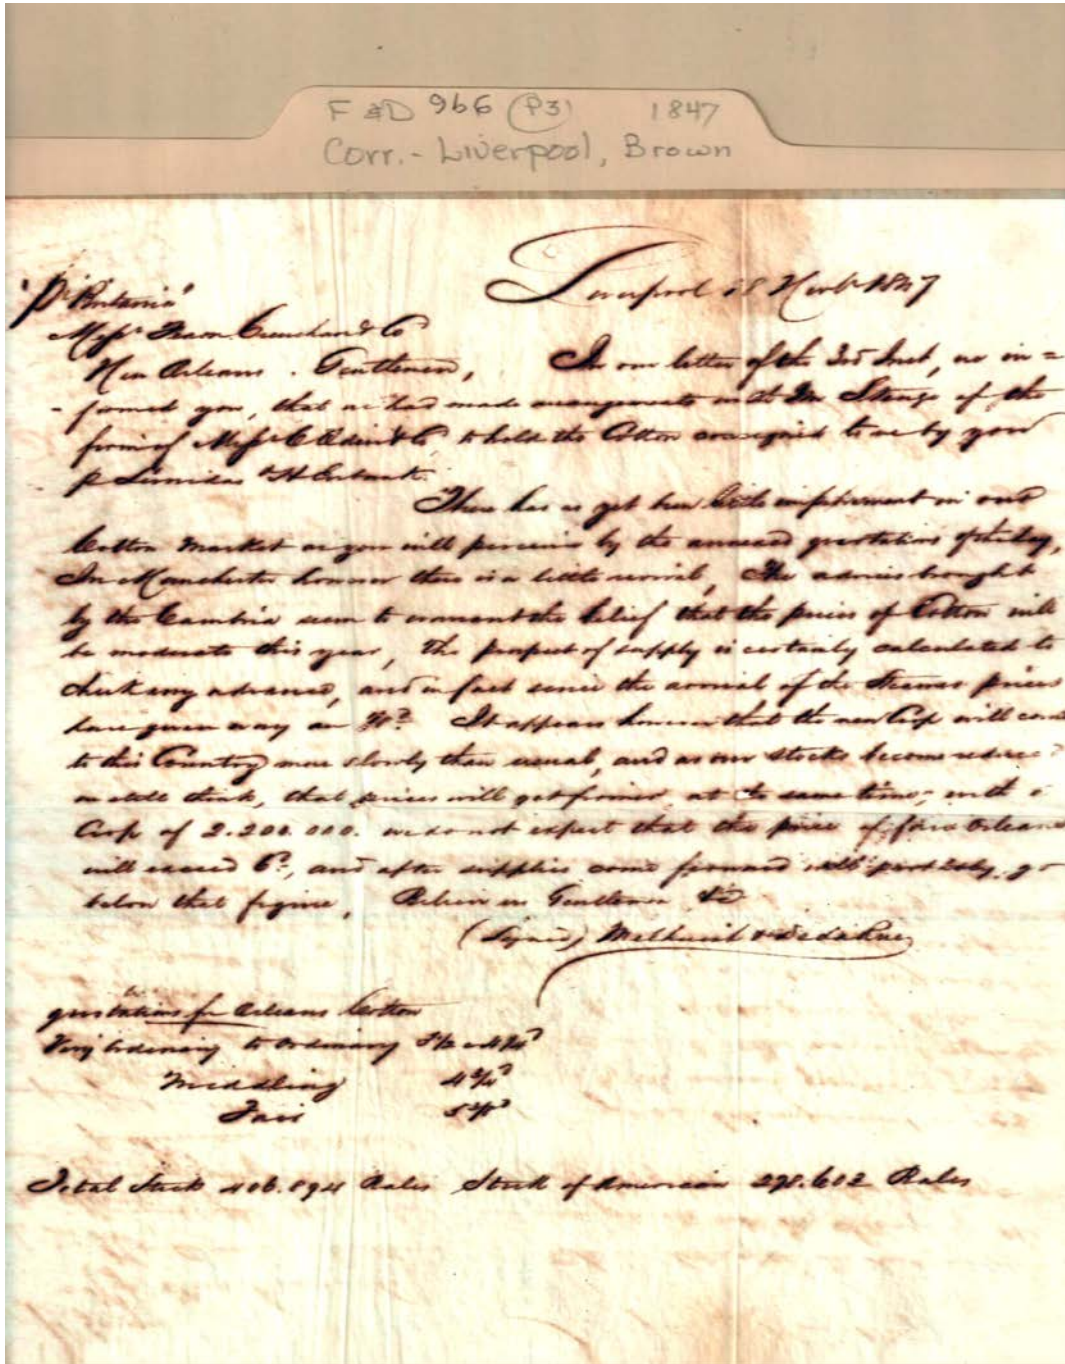 F & D 966 (P3) 1847
Corr. - Liverpool, Brown
Liverpool 18 Novbr 1847
"Pr Britannia"
Messrs & Co
New Orleans. Gentlemen, In our letter of the 3rd Inst, we in =
- formed you, that we had made arrangements with Mr of the
firm of Messrs & Co, to hold the Cotton consigned to us by you
p
There has as yet been little improvement in our
Cotton Market as you will perceive by the annexed quotations of the day,
In Manchester however there is a little revival, The advices brought
by the Cambria seem to warrant the belief that the prices of Cotton will
be moderate this year, the prospect of supply is certainly calculated to
check any advance, and in fact since the arrival of the Steamer prices
have given way an It appears however that the new Crop will come
to this Country more slowly than usual, and as our stocks become reduced
we still think, that prices will get firmer, at the same time, with a
Crop of 2.200.000. we do not expect that the price of fair Orleans
will exceed 6d, and after supplies come forward will probably go
below that figure, Believe us Gentlemen &c
(Signed)
quotations for Orleans Cotton
Very Ordinary to Ordinary 3½ a 4¼d
Middling 4¾d
Fair
Total Stock 406.894 Bales Stock of American 298.602 Bales